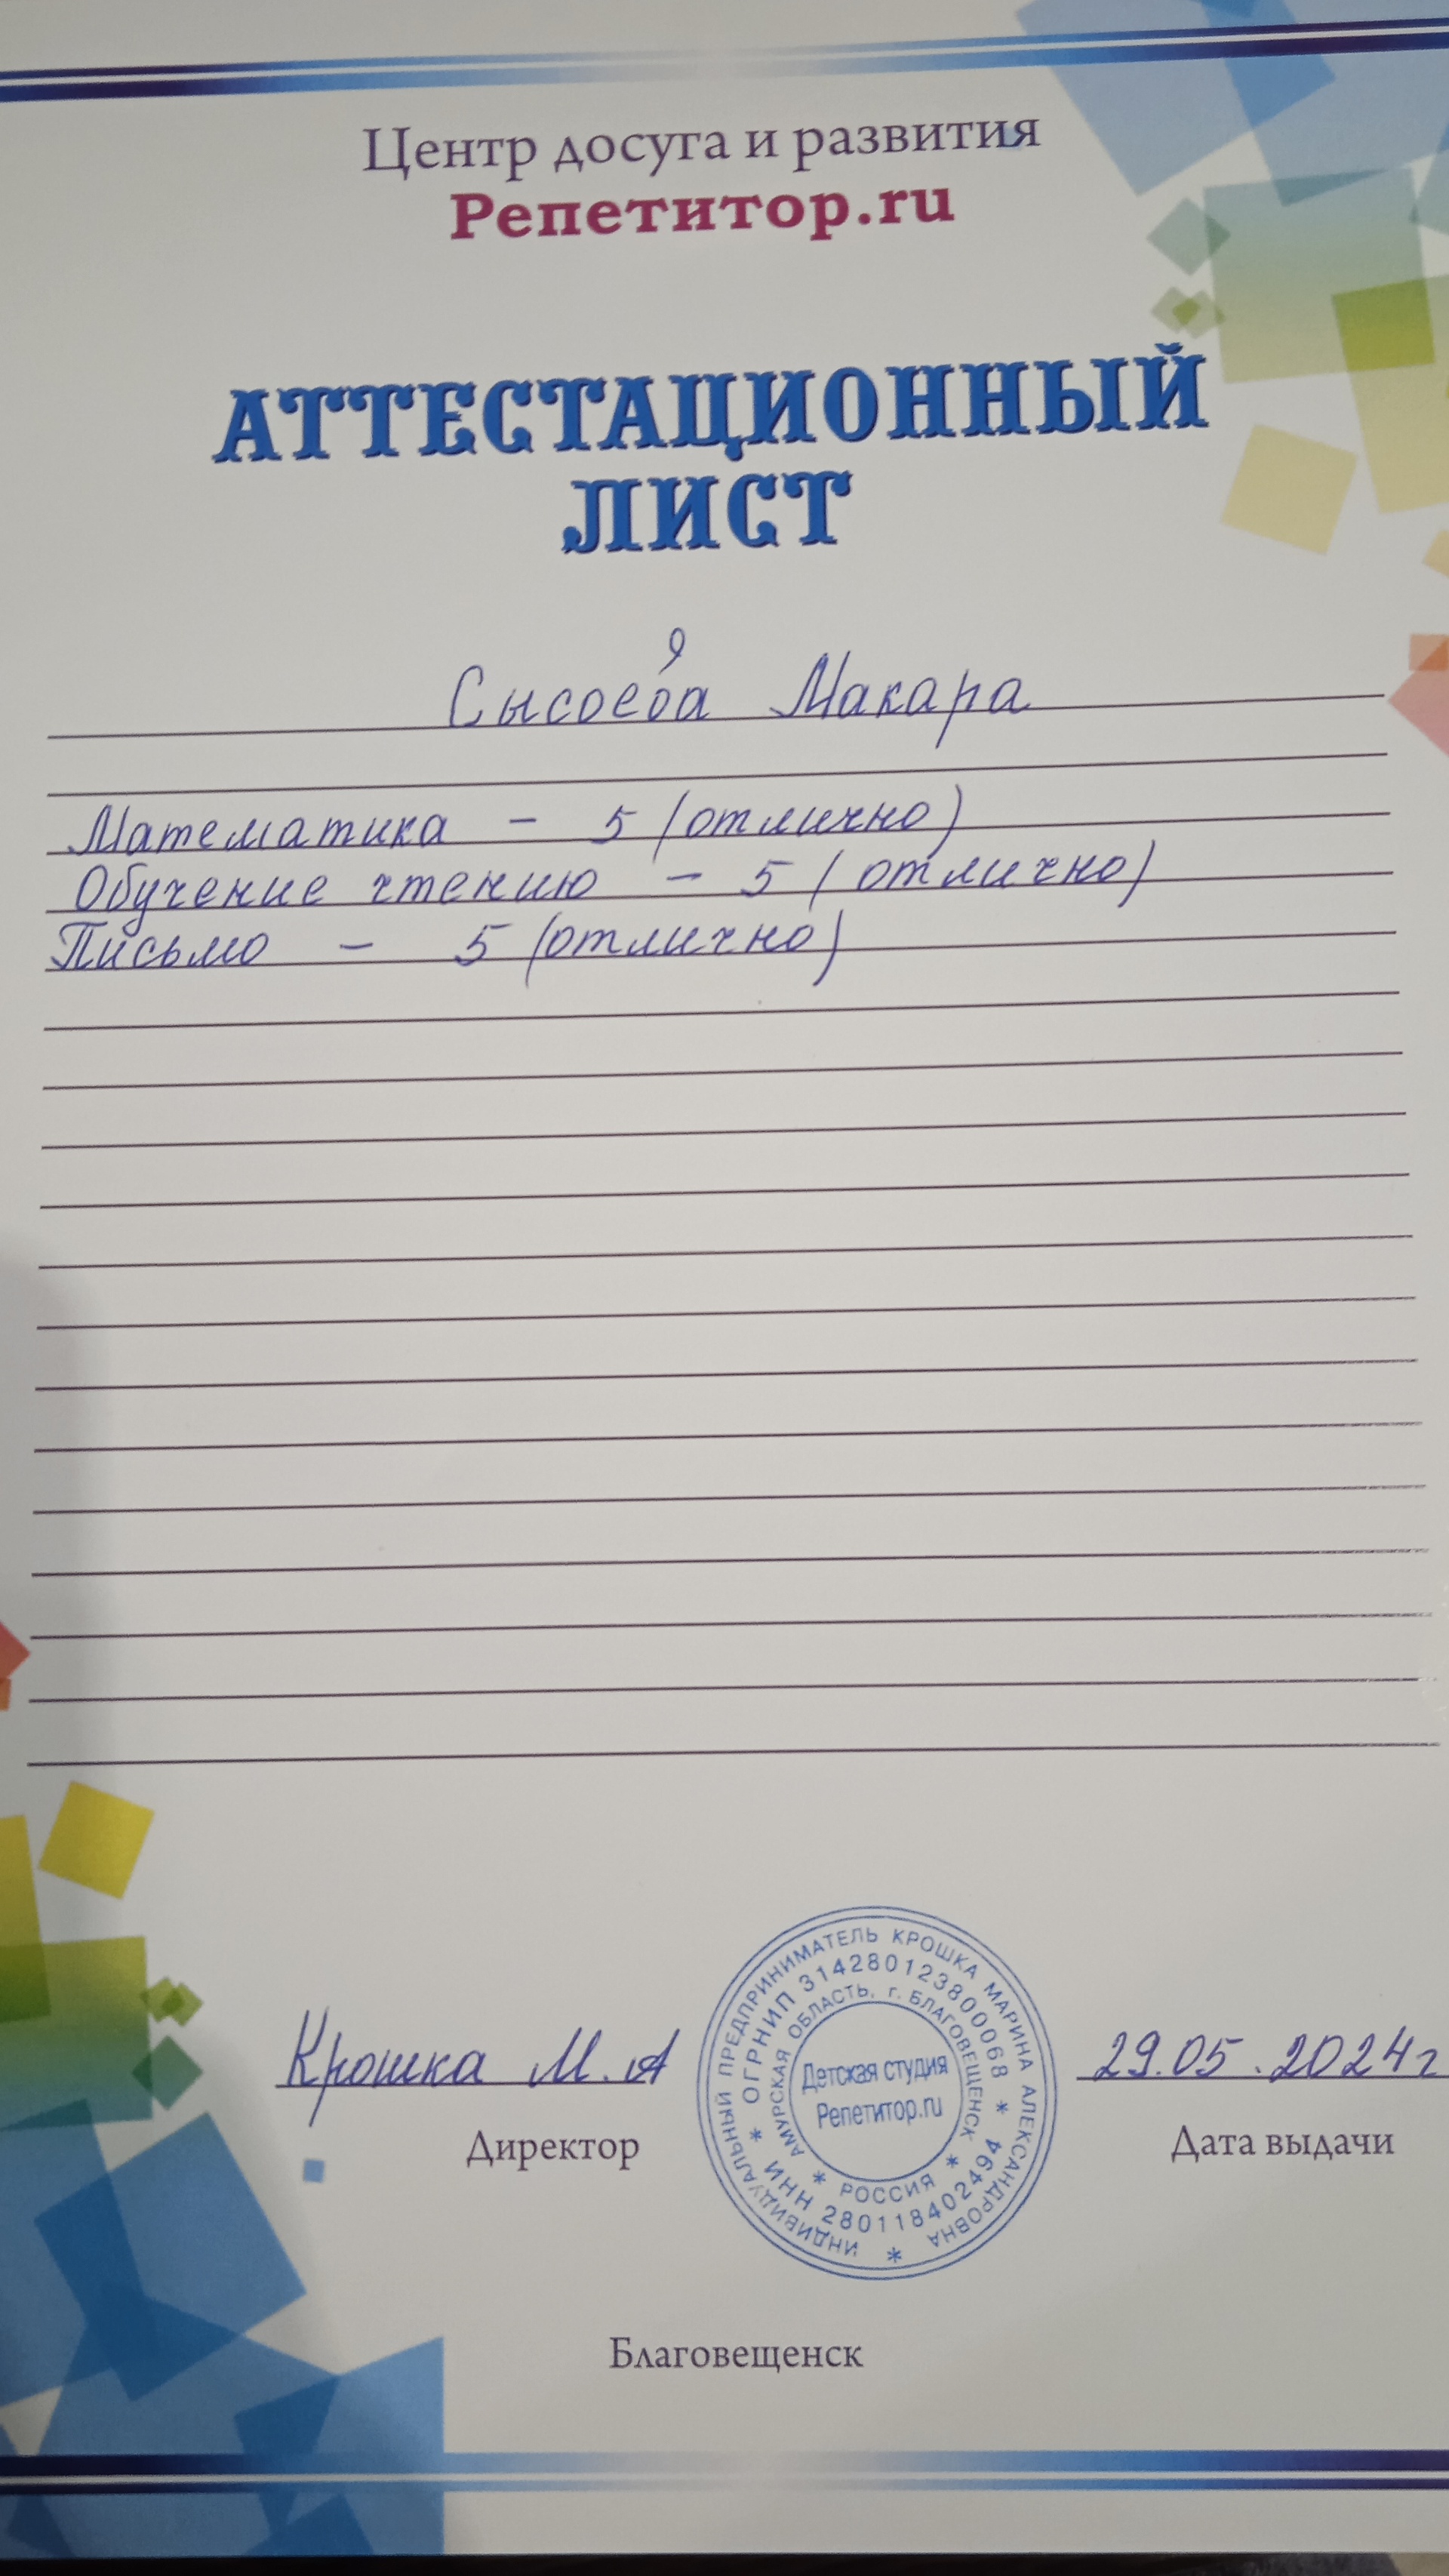 Центр досуга и развития
Репетитор.ru
АТТЕСТАЦИОННЫЙ
ЛИСТ
Сысоева Макара
Математика - 5 (отлично)
Обучение чтению - 5 (отлично)
Письмо - 5 (отлично)
Крошка М.А
Директор
ИНДИВИДУАЛЬНЫЙ ПРЕДПРИНИМАТЕЛЬ КРОШКА МАРИНА АЛЕКСАНДРОВНА *
* ОГРНИП 314280123800068 * ИНН 280118402494
АМУРСКАЯ ОБЛАСТЬ, г. БЛАГОВЕЩЕНСК * РОССИЯ *
Детская студия
Репетитор.ru
29.05.2024г
Дата выдачи
Благовещенск